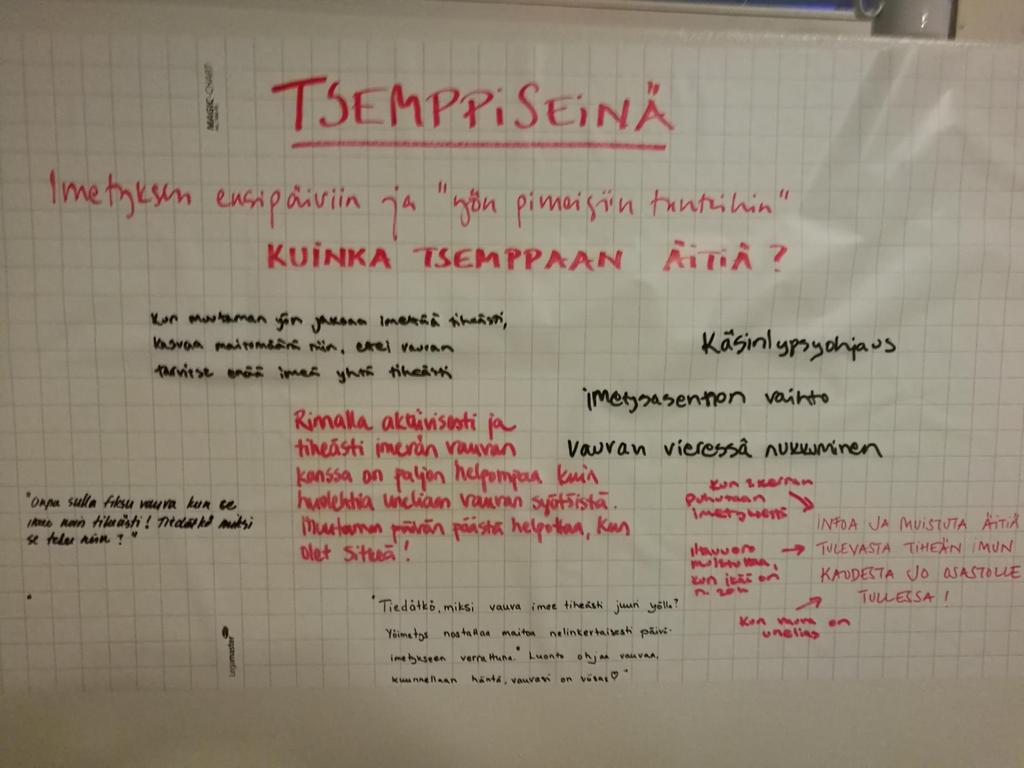 MAGIC-CHART
TSEMPPISEINÄ
Imetyksen ensipäiviin ja "yön pimeisiin tunteihin"
KUINKA TSEMPPAAN ÄITIÄ?
Kun muutaman yön jaksaa imettää tiheästi,
kasvaa maitomäärä niin, ettei vauvan
tarvitse enää imeä yhtä tiheästi
Käsinlypsyohjaus
imetysasennon vaihto
Vauvan vieressä nukkuminen
Rinnalla aktiivisesti ja
tiheästi imevän vauvan
kanssa on paljon helpompaa kuin
huolehtia uneliaan vauvan syötöistä.
Muutaman päivän päästä helpottaa, kun
olet sitkeä!
"Onpa sulla fiksu vauva kun se
imee noin tiheästi! Tiedätkö miksi
se tekee niin?"
Kun 1. kerran
puhutaan
imetyksestä
Iltavuoro
muistuttaa,
kun ikää on
n. 20h
Kun vauva on
unelias
INFOA JA MUISTUTA ÄITIÄ
TULEVASTA TIHEÄN IMUN
KAUDESTA JO OSASTOLLE
TULLESSA!
"Tiedätkö, miksi vauva imee tiheästi juuri yöllä?
Yöimetys nostattaa maitoa nelinkertaisesti päivä-
imetykseen verrattuna." Luonto ohjaa vauvaa,
kuunnellaan häntä, vauvasi on viisas♡"
Legamaster